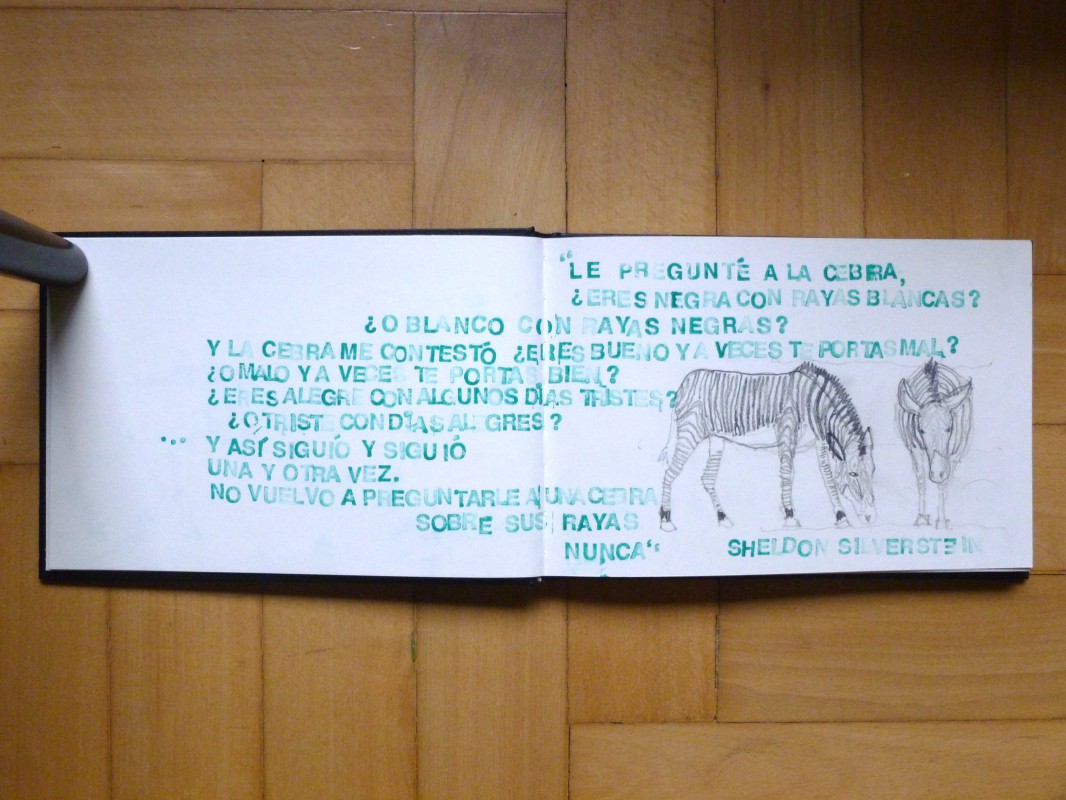 “LE PREGUNTÉ A LA CEBRA,
¿ERES NEGRA CON RAYAS BLANCAS?
¿O BLANCO CON RAYAS NEGRAS?
Y LA CEBRA ME CONTESTÓ ¿ERES BUENO Y A VECES TE PORTAS MAL?
¿O MALO Y A VECES TE PORTAS BIEN?
¿ERES ALEGRE CON ALGUNOS DÍAS TRISTES?
¿O TRISTE CON DÍAS ALEGRES?
... Y ASÍ SIGUIÓ Y SIGUIÓ
UNA Y OTRA VEZ.
NO VUELVO A PREGUNTARLE A UNA CEBRA
SOBRE SUS RAYAS
NUNCA“
SHELDON SILVERSTEIN